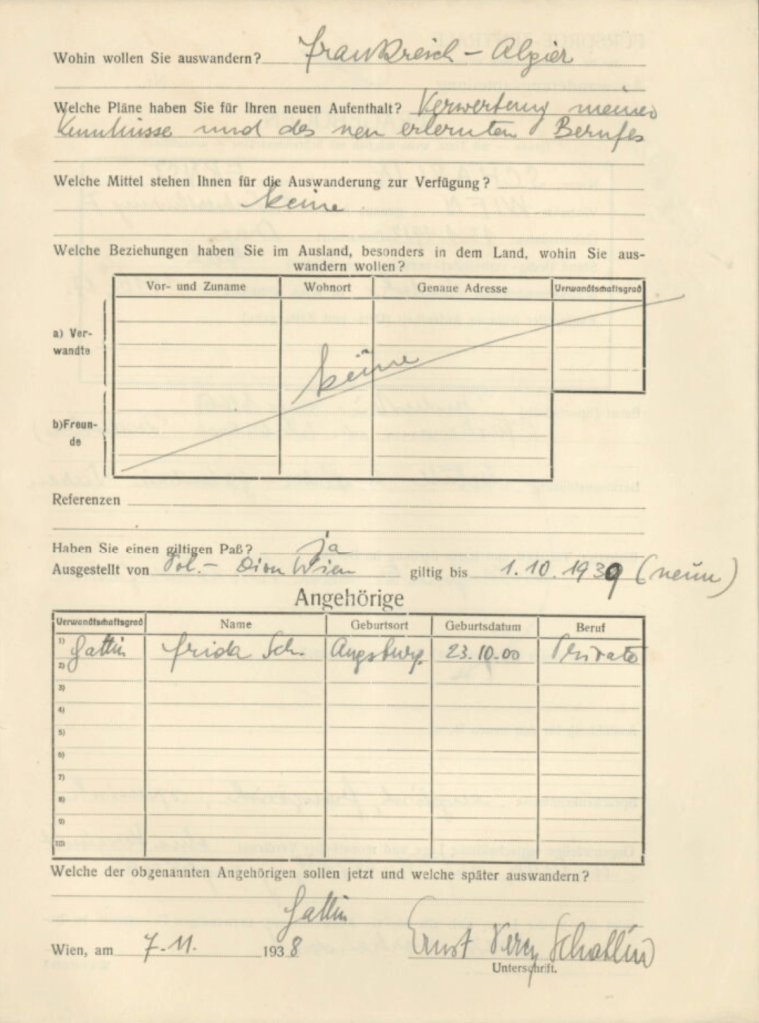 Wohin wollen Sie auswandern? Frankreich – Algier
Welche Pläne haben Sie für Ihren neuen Aufenthalt? Verwertung meiner
Kenntnisse und des neu erlernten Berufes
Welche Mittel stehen Ihnen für die Auswanderung zur Verfügung?
keine
Welche Beziehungen haben Sie im Ausland, besonders in dem Land, wohin Sie aus-
wandern wollen?
Vor- und Zuname Wohnort Genaue Adresse Verwandtschaftsgrad
a) Ver-
wandte
keine
b)Freun-
de
Referenzen
Haben Sie einen giltigen Paß? ja
Ausgestellt von Pol.- Dion Wien giltig bis 1.10.1939 (neun)
Angehörige
Verwandtschaftsgrad Name Geburtsort Geburtsdatum Beruf
1) Gattin Frida Sch. Augsburg 23.10.00 Private
2)
3)
4)
5)
6)
7)
8)
9)
10)
Welche der obgenannten Angehörigen sollen jetzt und welche später auswandern?
Gattin
Wien, am 7.11. 1938 Ernst
Unterschrift.